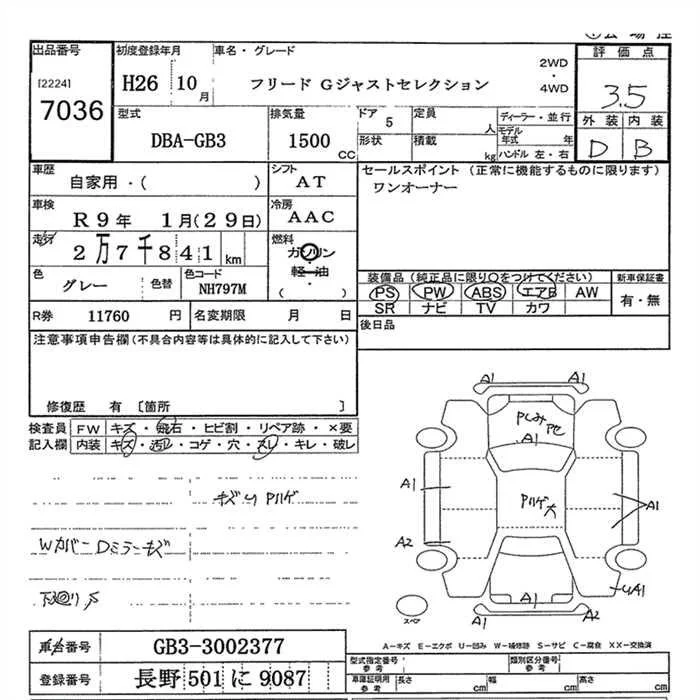 出品番号 初度登録年月 車名・グレード 評価点
[2224] 2WD
7036 H26 10月 フリード Gジャストセレクション ・ 3.5
4WD
型式 排気量 ドア 5 定員 人 ディーラー・並行 外装 内装
DBA-GB3 1500 CC 形状 積載 kg モデル年式 年 D B
ハンドル 左・右
車歴 自家用・( ) シフト AT セールスポイント (正常に機能するものに限ります)
ワンオーナー
車検 R9年 1月(29日) 冷房 AAC
走行 2万7千841km 燃料 ガソリン
軽油
・
( )
色 グレー 色替 色コード NH797M
装備品(純正品に限り○をつけてください) 新車保証書
PS PW ABS エアB AW 有・無
SR ナビ TV カワ
R券 11760 円 名変期限 月 日 後日品
注意事項申告欄(不具合内容等は具体的に記入して下さい)
修復歴 有 [箇所 ]
検査員 FW キズ・飛石・ヒビ割・リペア跡・×要
記入欄 内装 キズ・汚レ・コゲ・穴・スレ・キレ・破レ
キズU Pハゲ
Wカバー Dミラーキズ
A1 A1
A1
A1 A1
Pハゲ大
A2
A1 A1 UA1
A2
スペア
A-キズ E-エクボ U-凹み W-補修跡 S-サビ C-腐食 XX-交換済
車台番号 GB3-3002377
登録番号 長野 501 に 9087
型式指定番号 参考 類別区分番号 参考
車庫証明用 参考 長さ cm 幅 cm 高さ cm